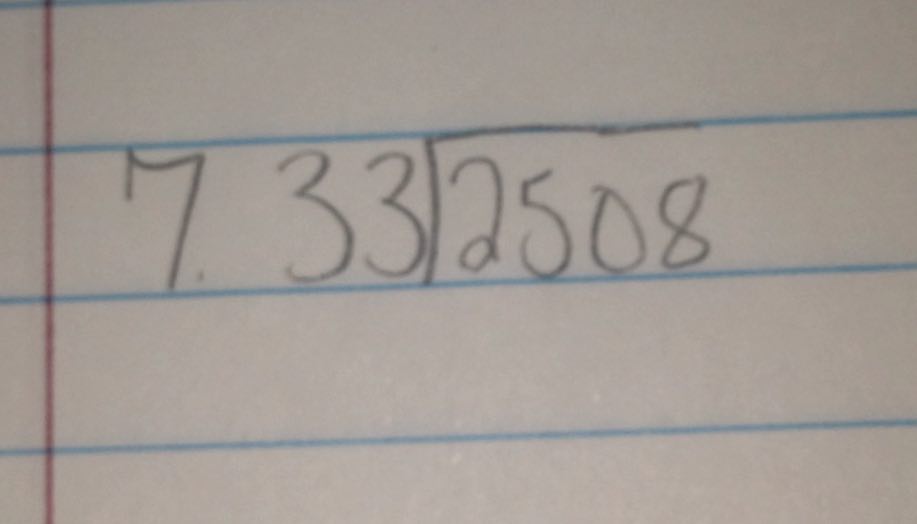 7. 33)2508